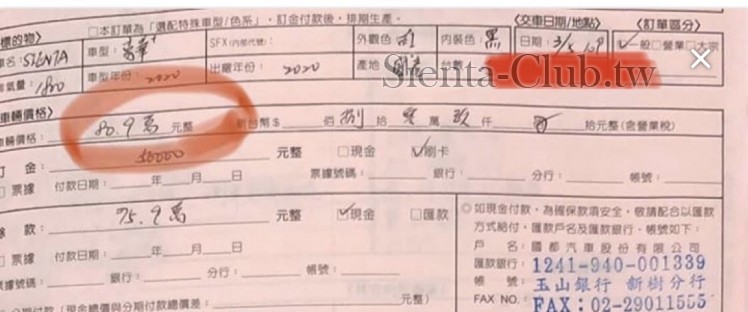 □本訂單為「選配特殊車型/色系」,訂金付款後,排期生產。
標的物〉 〈交車日期/地點〉 〈訂單區分〉
車名:SIENTA 車型:豪華+ SFX(內部代號): 外觀色: 內裝色:黑 日期:3/5 ☑一般□營業□大宗
氣量:1800 車型年份:2020 出廠年份:2020 產地:國產 台數
Sienta-Club.tw
車輛價格〉
車輛價格:80.9萬元整 新台幣$ 佰捌拾零萬玖仟 拾元整(含營業稅)
訂金:50000元整 □現金 ☑刷卡
□票據 付款日期: 年 月 日 票據號碼: 銀行: 分行: 帳號:
餘款:75.9萬元整 ☑現金 □匯款
□票據 付款日期: 年 月 日
票據號碼: 銀行: 分行: 帳號:
分期付款(現金總價與分期付款總價差: 元整)
◎如現金付款,為確保款項安全,敬請配合以匯款
方式給付,匯款戶名及匯款銀行、帳號如下:
戶名:國都汽車股份有限公司
匯款銀行:1241-940-001339
帳號:玉山銀行 新樹分行
FAX NO.:FAX:02-29011555